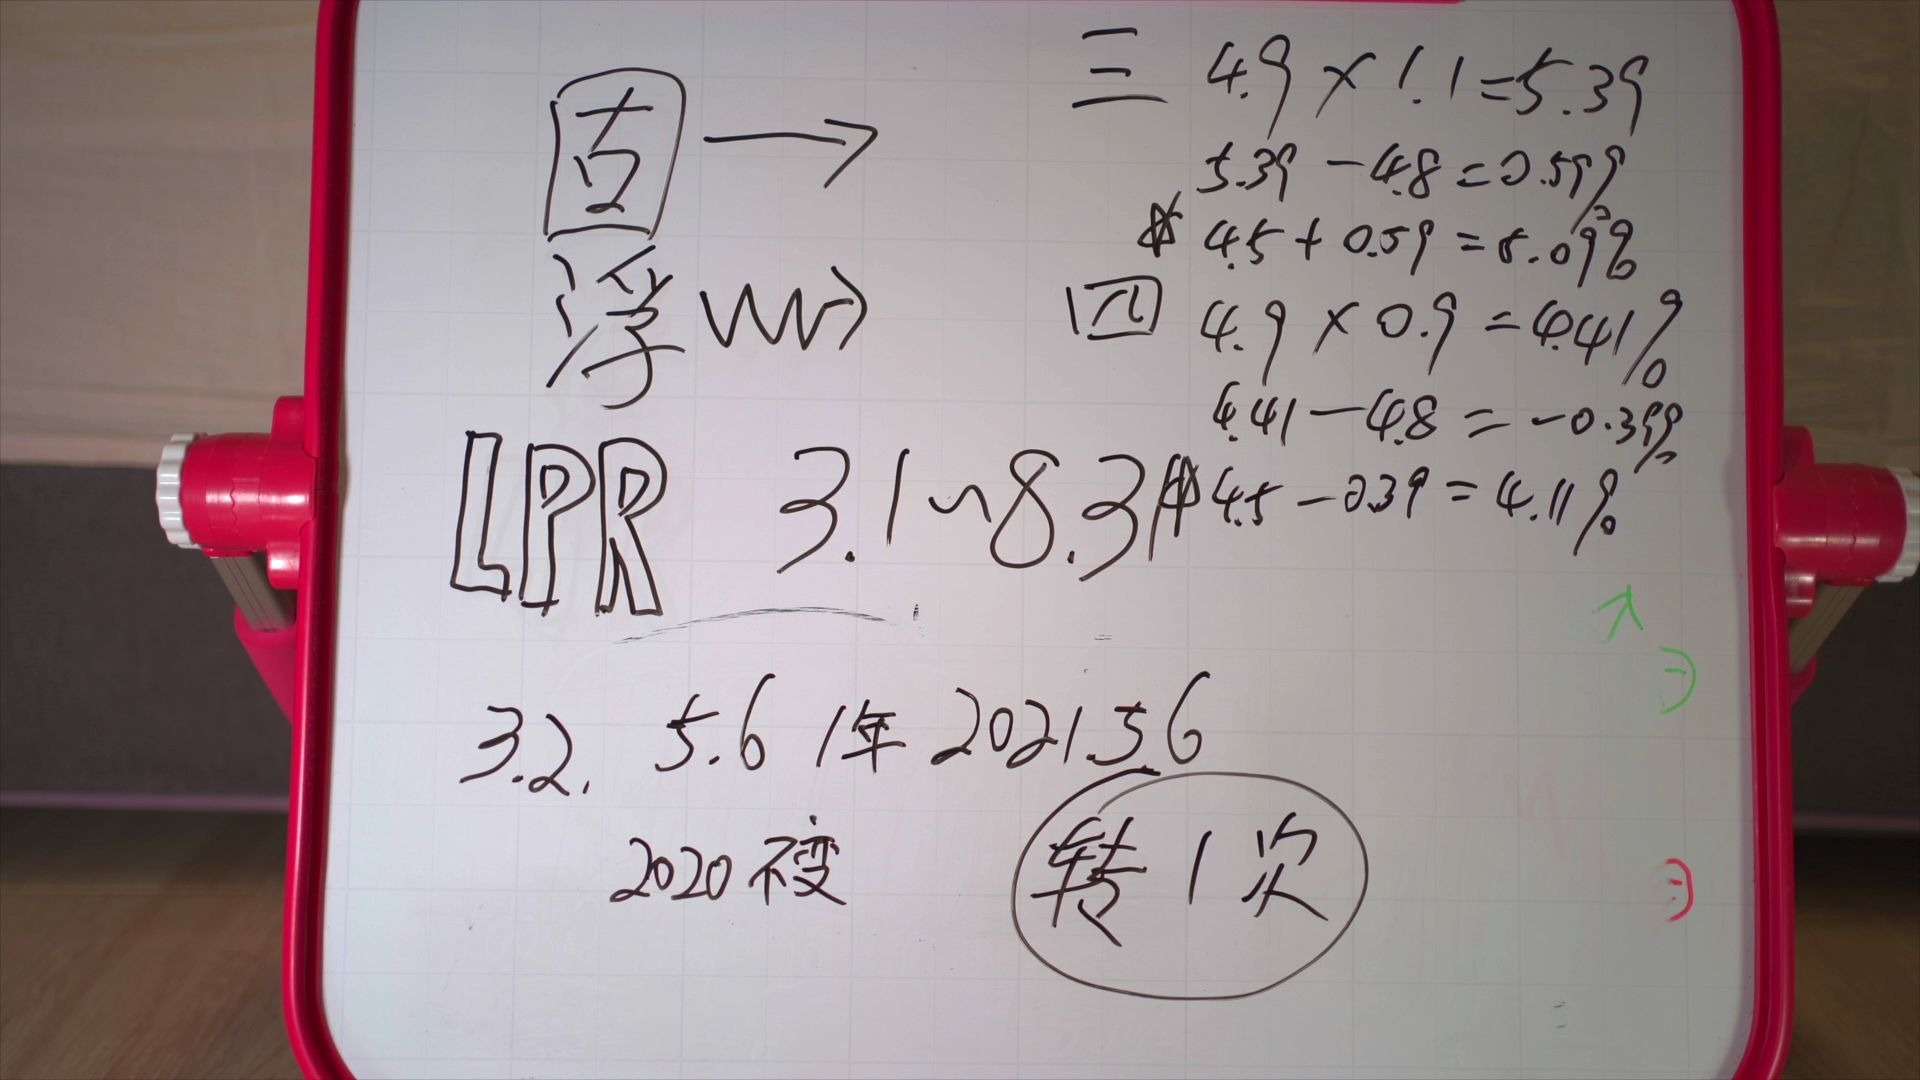 固 →
浮
LPR 3.1~8.31
3.2. 5.6 1年 2021.5.6
2020不变 转1次
三 4.9×1.1=5.39
5.39-4.8=0.59%
4.5+0.59=5.09%
四 4.9×0.9=4.41%
4.41-4.8=-0.39%
4.5-0.39=4.11%